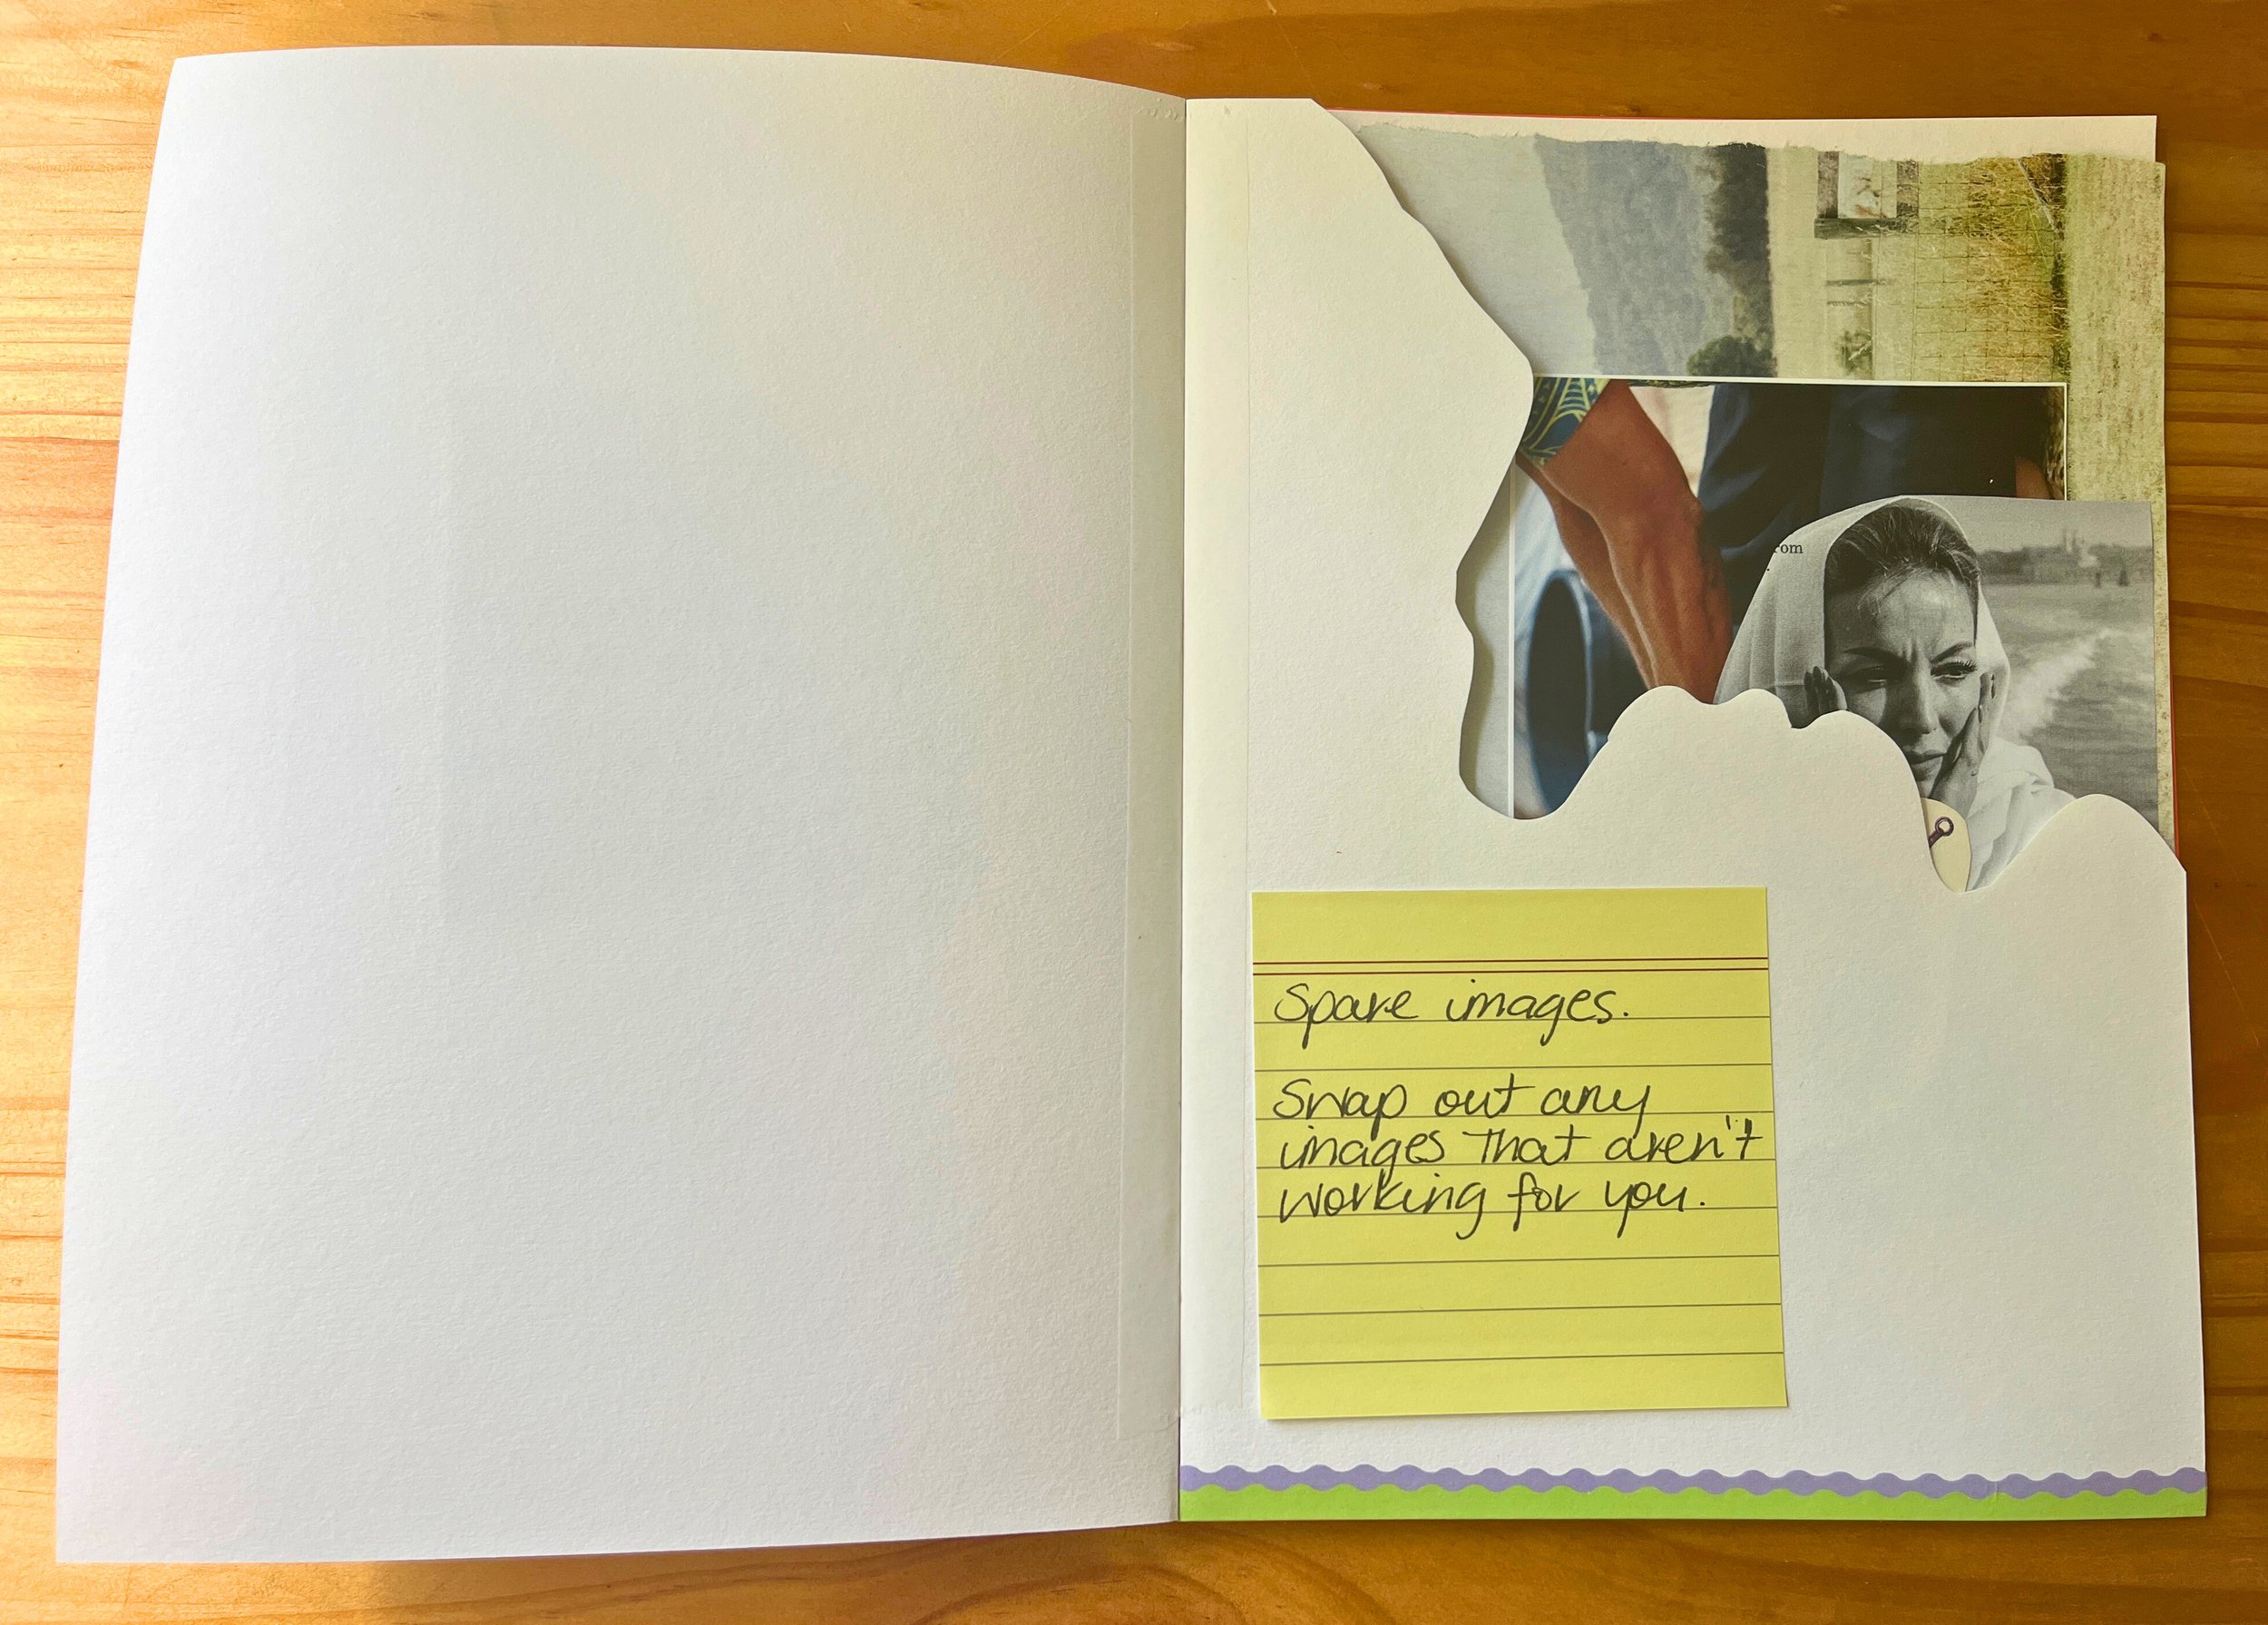 rom
Spare images.
Swap out any
images that aren't
working for you.